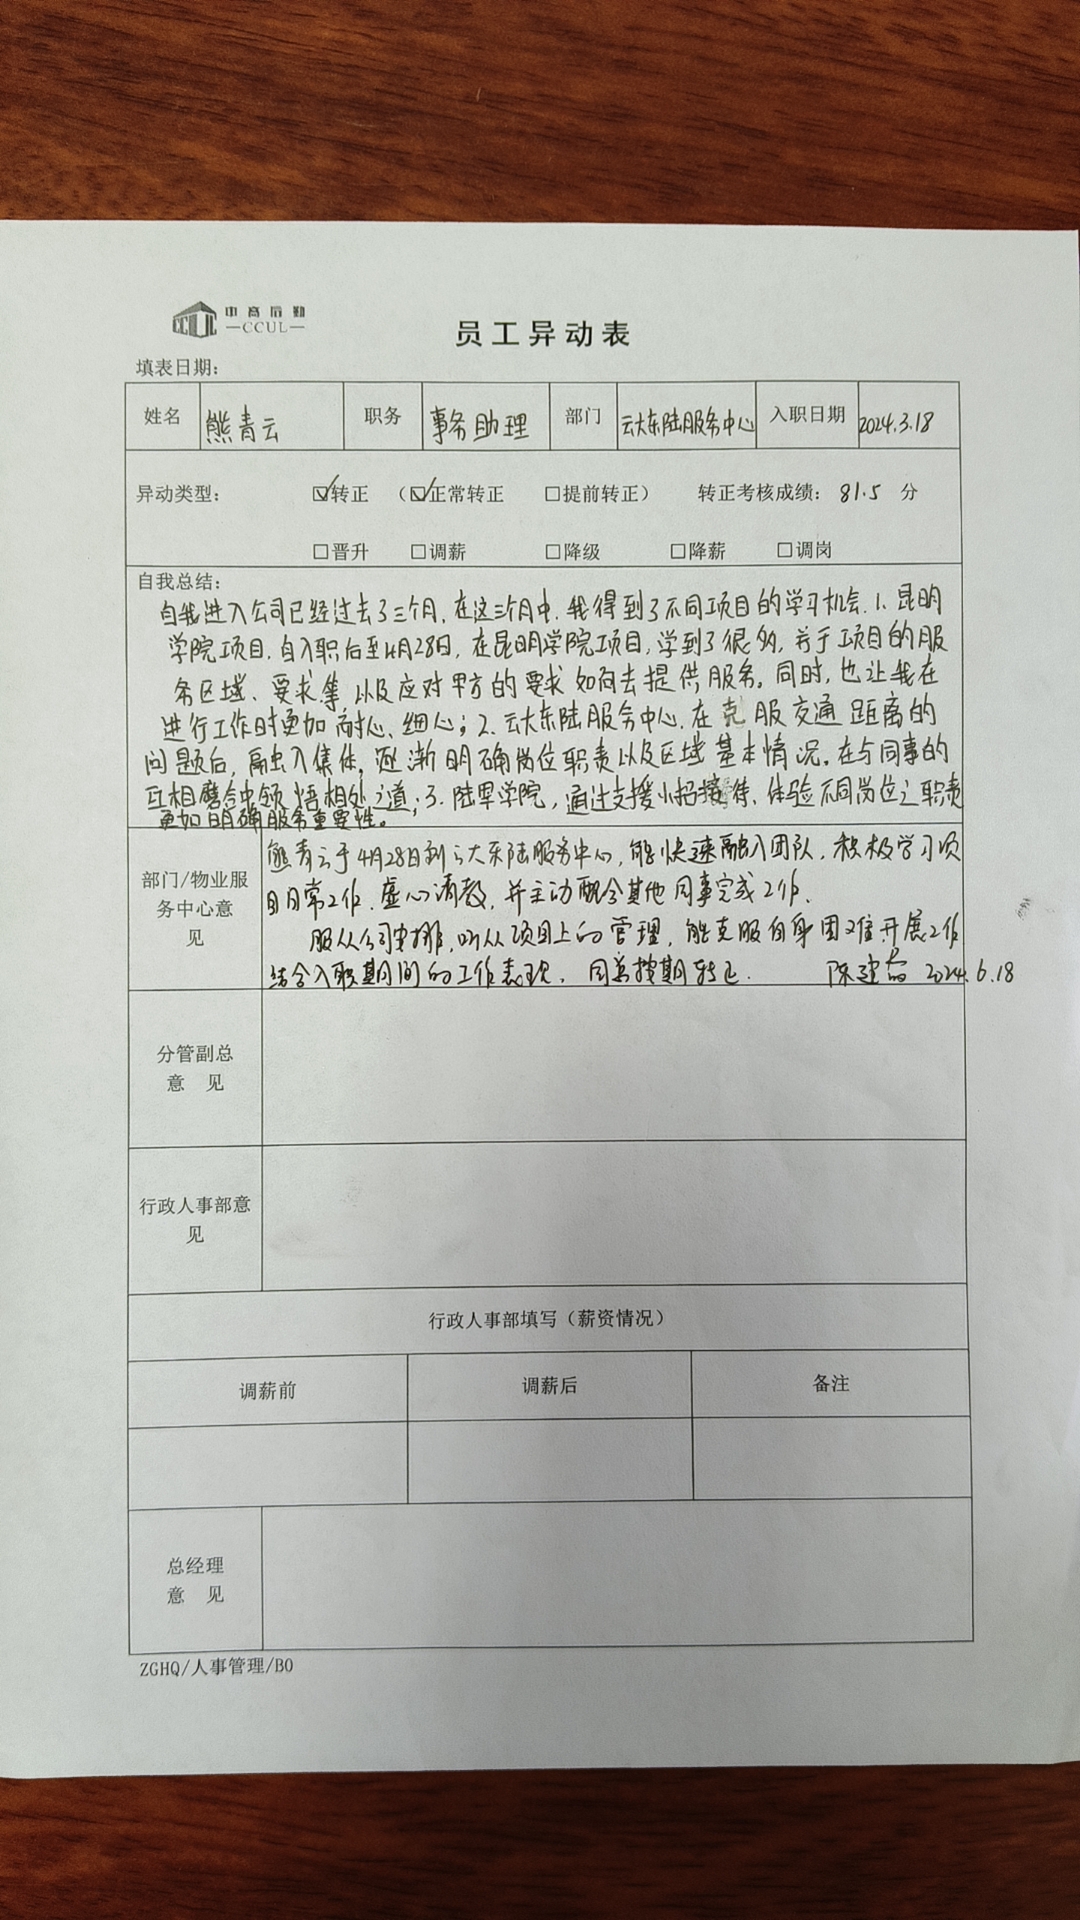 中商后勤
CCUL
—CCUL—
员工异动表
填表日期：
姓名 熊青云 职务 事务助理 部门 云大东陆服务中心 入职日期 2024.3.18
异动类型： ☑转正 （☑正常转正 □提前转正） 转正考核成绩： 81.5 分
□晋升 □调薪 □降级 □降薪 □调岗
自我总结：
自我进入公司已经过去了三个月，在这三个月中，我得到了不同项目的学习机会.1.昆明
学院项目.自入职后至4月28日，在昆明学院项目，学到了很多，关于项目的服
务区域、要求等以及应对甲方的要求如何去提供服务。同时，也让我在
进行工作时更加耐心、细心；2.云大东陆服务中心.在克服交通距离的
问题后，融入集体，逐渐明确岗位职责以及区域基本情况。在与同事的
互相磨合中领悟相处之道；3.陆军学院，通过支援小招接待、体验不同岗位之职责
更加明确服务重要性。
部门/物业服
务中心意
见
熊青云于4月28日到云大东陆服务中心，能快速融入团队，积极学习项
目日常工作.虚心请教，并主动配合其他同事完成工作.
服从公司安排，听从项目上的管理，能克服自身困难开展工作
结合入职期间的工作表现，同意按期转正. 陈建 2024.6.18
分管副总
意 见
行政人事部意
见
行政人事部填写（薪资情况）
调薪前 调薪后 备注
总经理
意 见
ZGHQ/人事管理/B0